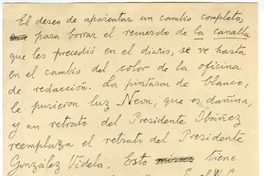 El deseo de aparentar un cambio completo,
para borrar el recuerdo de la canalla
que les precedió en el diario, se ve hasta
en el cambio del color de la oficina
de redacción. La pintaron de blanco,
le pusieron luz Neon, que es dañina,
y un retrato del Presidente Ibáñez
reemplaza el retrato del Presidente
González Videla. Esto tiene